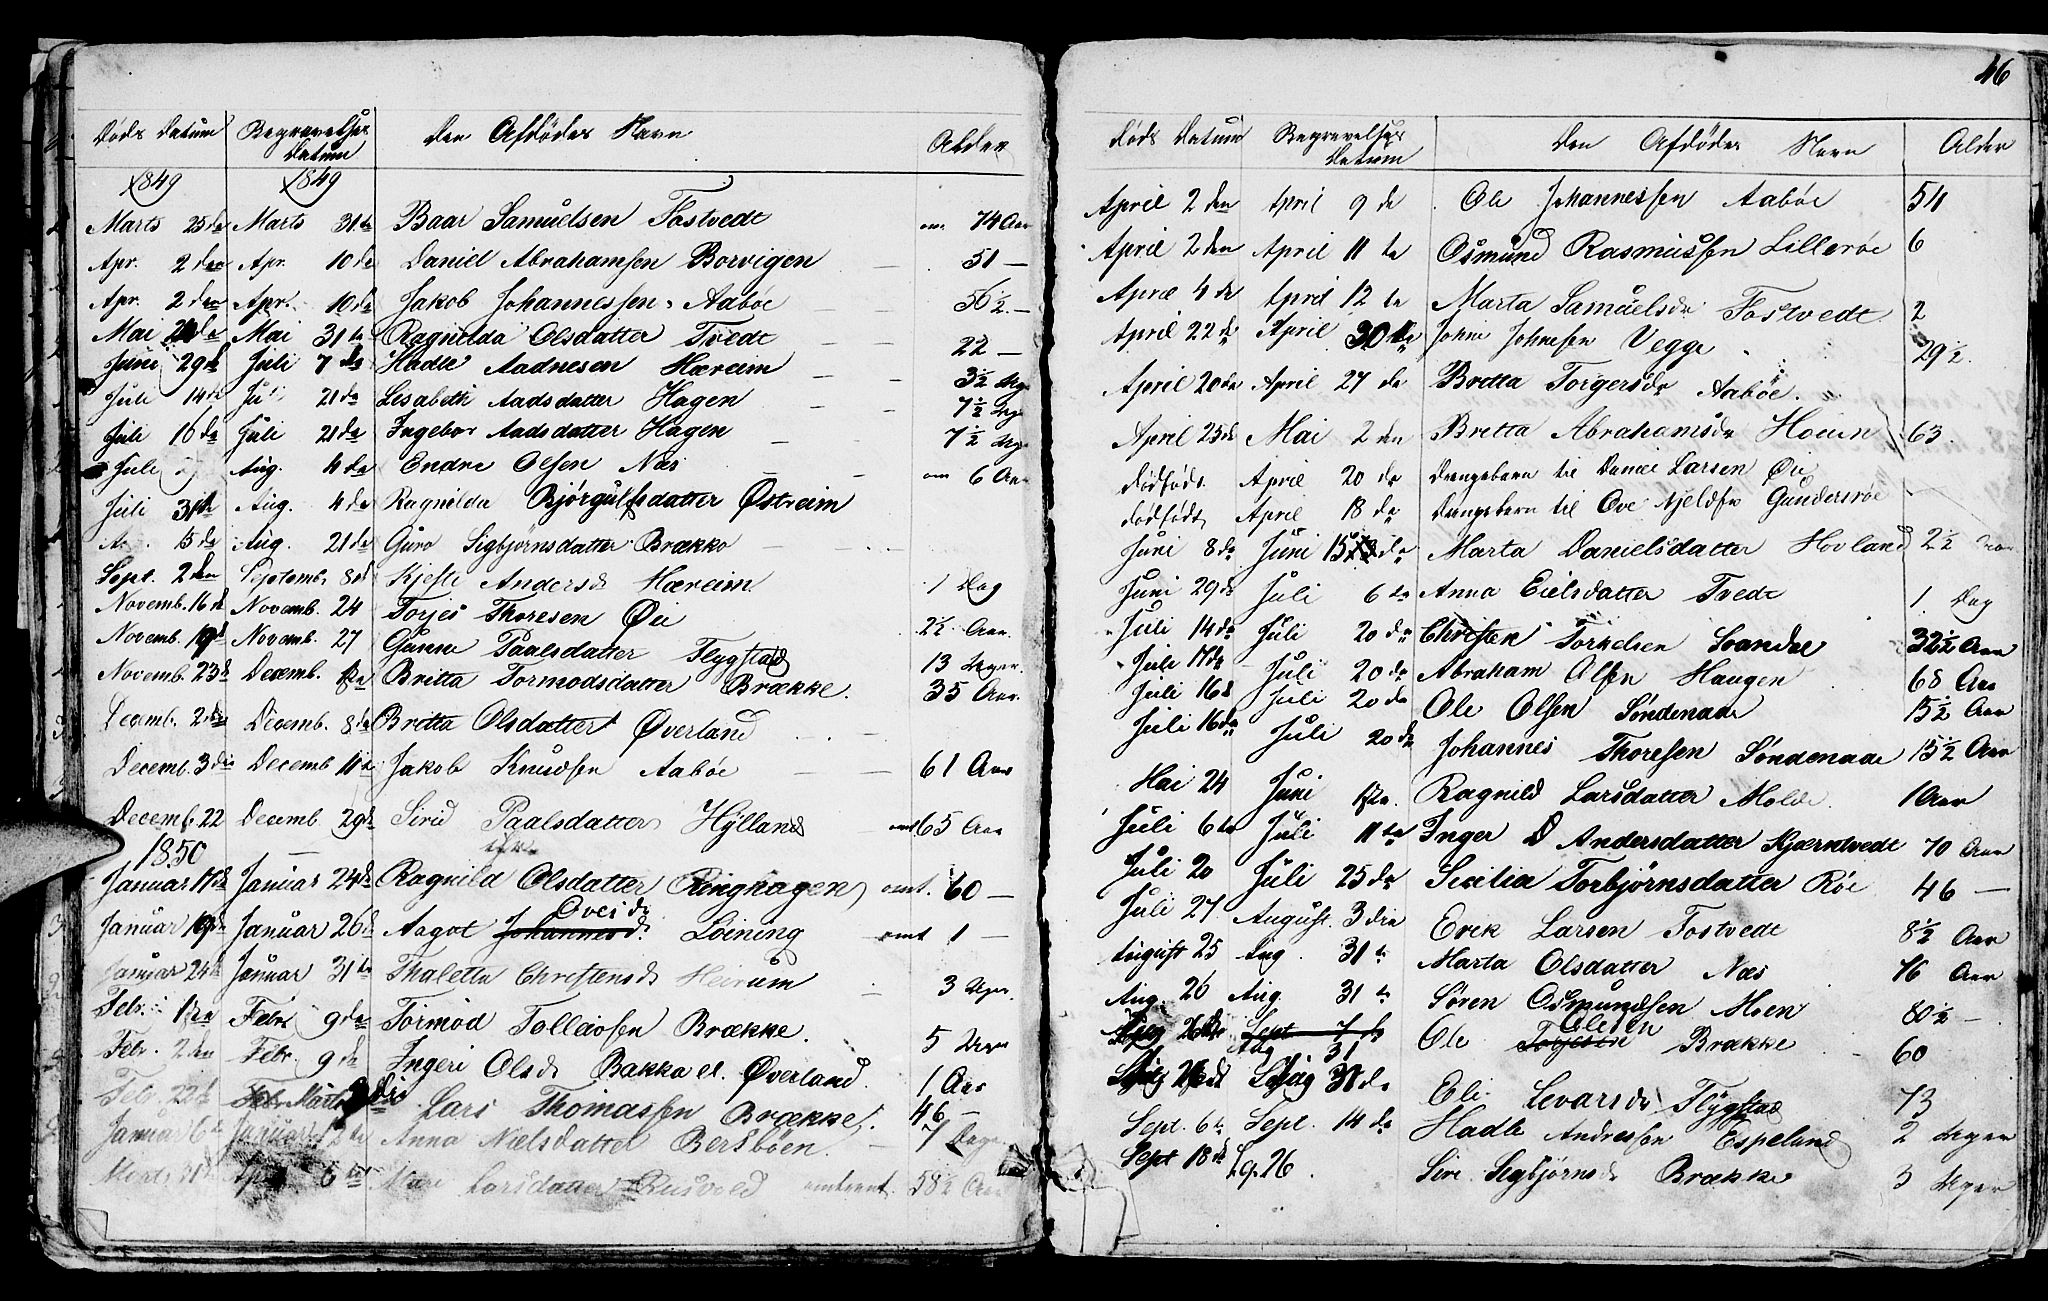 Døds Datum Begravelses Datum Den Afdødes Navn Alder
1849 1849
Marts 25de Marts 31te Baar Samuelsen Tostvedt om 74 Aar
Apr. 2den Apr. 10de Daniel Abrahamsen Borvigen 51 —
Apr. 2den Apr. 10de Jakob Johannessen Aabøe 56½ —
Mai Mai 31te Ragnilda Olsdatter Tvedt 22 —
Juni 29d Juli 7de Hadle Aadnesen Hæreim 3½ Uge
Juli 14de 21de Lisabeth Aadsdatter Hagen 7½ Uge
Juli 16de Juli 21de Ingebor Aadsdatter Hagen 7½ Uge
Juli Aug. 4de Endre Olsen Næs om 6 Aar
Juli 31te Aug. 4de Ragnilda Bjørgulfsdatter Østreim
5de Aug. 21de Guro Sigbjørnsdatter Brække
Sept. 2den Septemb. 8d Kjesti Andersd Hæreim 1 Dag
Novemb. 16d Novemb. 24 Torjes Thoresen Øie 2½ Aar
Novemb. 19d Novemb. 27 Gunna Paalsdatter Flygstad 13 Uger
Novemb. 23d Decemb. 1ste Britta Tormodsdatter Brække. 35 Aar
Decemb. 2den Decemb. 8de Britta Olsdatter Øverland
Decemb. 3die Decemb 11te Jakob Knudsen Aabøe 61 Aar
Decemb. 22 Decemb. 29d Sirid Paalsdatter Hylland omt 65 Aar
1850
Januar 17d Januar 24de Ragnild Olsdatter Ringhagen omt. 60 —
Ovesd
Januar 19de Januar 26d Aagot Johannesd. Løining omt 1 —
Januar 24d Januar 31te Thaletta Christensd Heirum 3 Uger
Febr. 1ste Febr 9de Tormod Tolleivsen Brække. 5 Uger
Febr. 2den Febr. 9de Ingeri Olsd Bakka el. Øverland 1 Aar
Febr. 22d Febr. Marts 2die Lars Thomassen Brække. 46 —
Januar 6te Januar Anna Nielsdatter Bersbøen. 7 Dage
Marts 31te 6te Larsdatter Rusvold omtrent 58½ Aar
46
Døds Datum Begravelses Datum Den Afdødes Navn Alder
April 2den April 9de Ole Johannessen Aabøe 54
April 2den April 11te Osmund Rasmussen Lillerøe 6
April 4de April 12te Marta Samuelsdr Tostvedt 2
April 22de April 30te Johnsen Vegge 29½
April 20de April 27de Britta Torgersdr Aabøe.
April 23d Mai 2den Britta Abrahamsdr Hoien 63.
Dødføds April 20de Drengebarn til Daniel Larsen Øie
Dødfødt April 18de Drengebarn til Ove Njeldsen Gundersrøe
Juni 8de Juni 15de Marta Danielsdatter Hovland 2½ Aar
Juni 29d Juli 6te Anna Eielsdatter Tvedt 1 Dag
Juli 14de Juli 20de Christen Torkelsen Svandal 32½ Aar
Juli 17de Juli 20de Abraham Olsen Haugen 68 Aar
Juli 16d Juli 20de Ole Olsen Søndenaae 15½ Aar
Juli 16de Juli 20de Johannes Thoresen Søndenaae 15½ Aar
Mai 24 Juni 1ste Ragnild Larsdatter Molde 1 Aar
Juli 6te Juli 11te Inger D Andersdatter Kjærntvedt 70 Aar
Juli 20 Juli 25de Secilia Torbjørnsdatter Røe 46 —
Juli 27 August. 3die Erik Larsen Tostvedt 8½ Aar
August 25 Aug. 31te Marta Olsdatter Næs 76 Aar
Aug. 26 Aug. 31te Søren Osmundsen Moen 80½ —
Olesen
Aug 26de Sept 7de Ole Torjesen Brække 60
Aug 31
Aug 31de Eli Levarsdr Flygstad 73
Sept. 6te Sept. 14de Hadle Andressen Espeland 2 Uger
Sept 18de 26 Siri Sigbjørnsd Brække 3 Uger